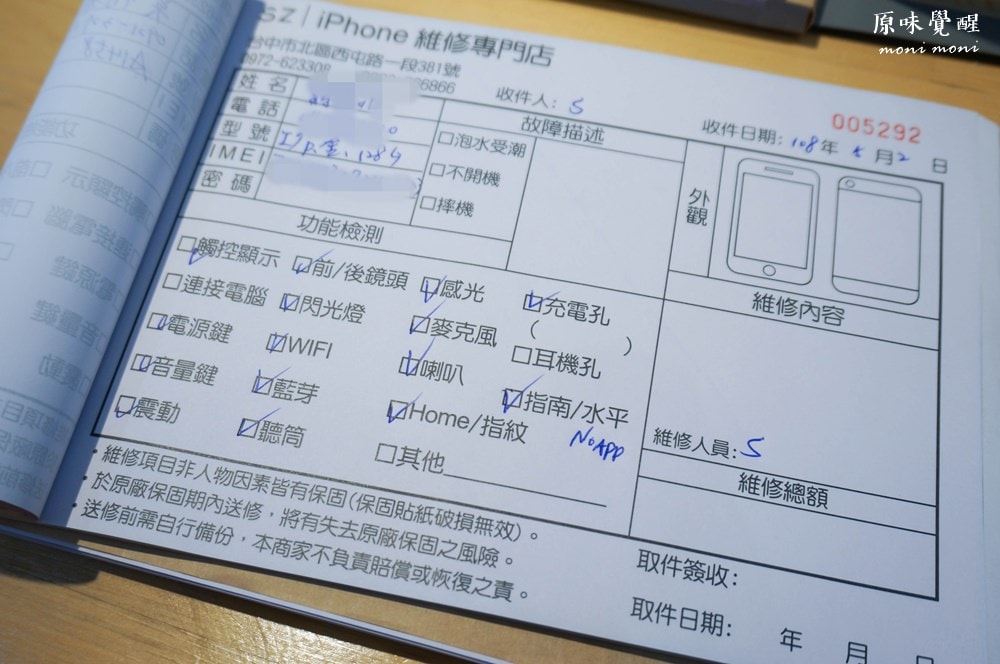 原味覺醒
moni moni
SZ | iPhone 維修專門店
台中市北區西屯路一段381號
0972-623308
收件人: S
收件日期: 108年 5月2日
005292
姓名
電話
型號
IMEI
密碼
故障描述
□泡水受潮
□不開機
□摔機
外觀
功能檢測
☑觸控顯示 ☑前/後鏡頭 ☑感光 ☑充電孔
□連接電腦 ☑閃光燈 ☑麥克風 ( )
☑電源鍵 ☑WIFI ☑喇叭 □耳機孔
☑音量鍵 ☑藍芽 ☑Home/指紋 ☑指南/水平
☑震動 ☑聽筒 □其他
No APP
維修內容
維修人員: S
維修總額
・維修項目非人物因素皆有保固(保固貼紙破損無效)。
・於原廠保固期內送修，將有失去原廠保固之風險。
・送修前需自行備份，本商家不負責賠償或恢復之責。
取件簽收:
取件日期: 年 月 日